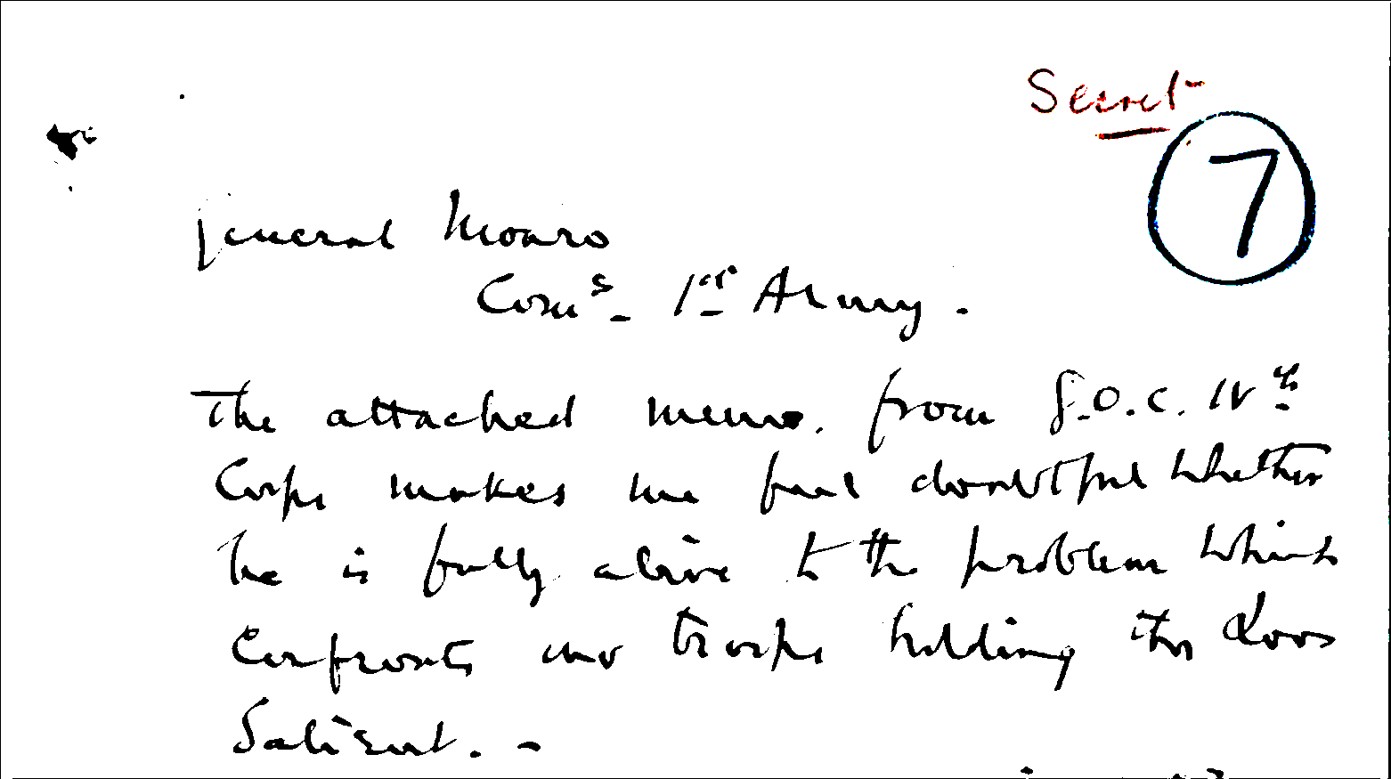 Secret
7
General Monro
Comg. 1st Army.
The attached memo. from G.O.C. IVth
Corps makes me feel doubtful whether
he is fully alive to the problem which
confronts our troops holding the Loos
Salient. -